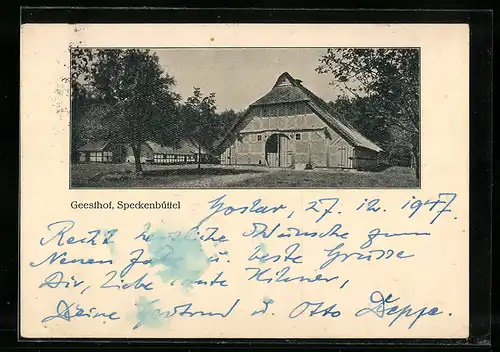 Geesthof, Speckenbüttel
Goslar, 27. 12. 1947
Recht herzliche Wünsche zum
Neuen Jahr u. beste Grüsse
Dir, liebe Tante Hübner,
Deine Gertrud u. Otto Deppe.